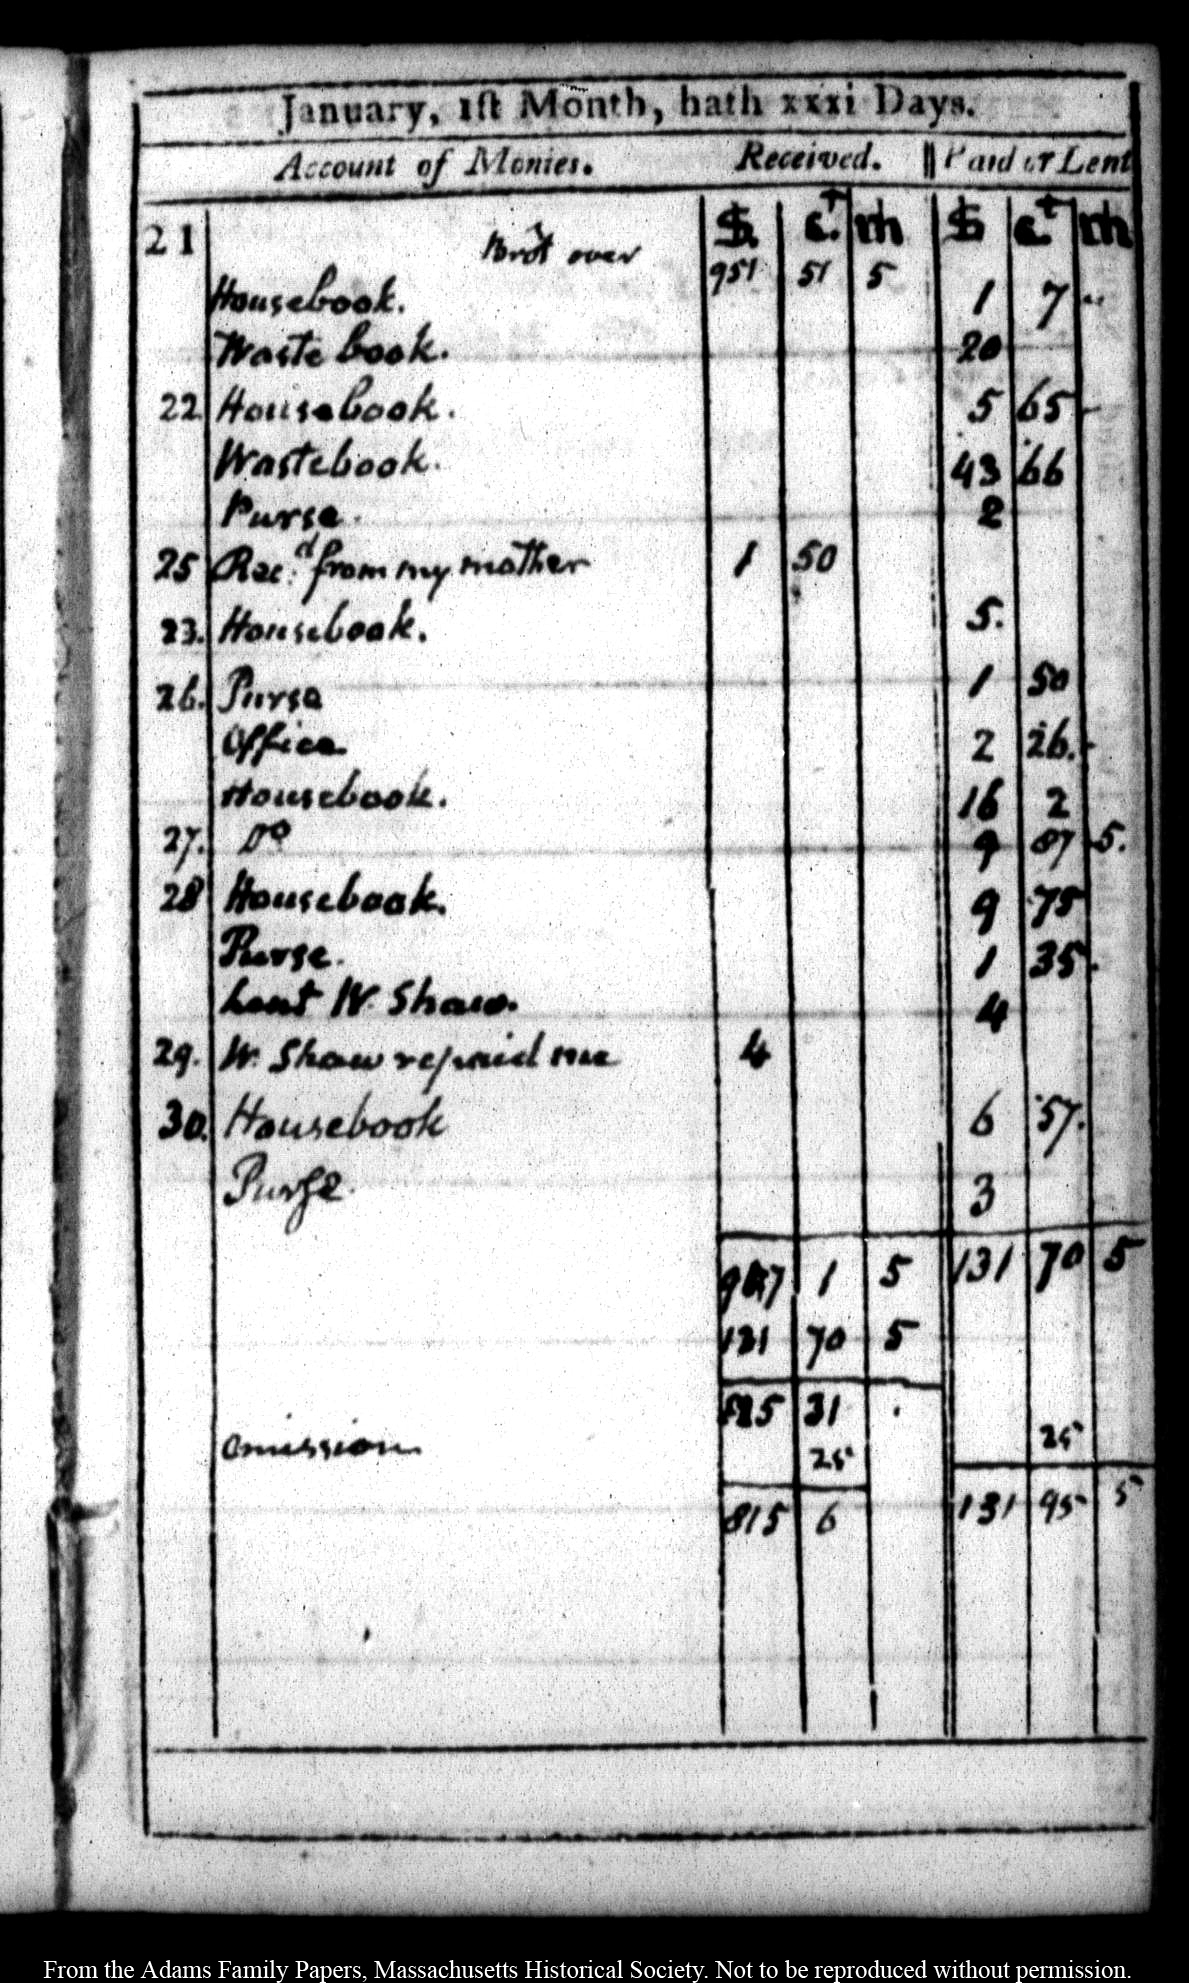 January, 1ſt Month, hath xxxi Days.
Account of Monies. Received. || Paid or Lent
$ ct m $ ct m
21 Brot over 951 51 5
Housebook. 1 7 "
Waste book. 20
22 Housebook. 5 65 -
Wastebook. 43 66
Purse. 2
25 Rec:d from my mother 1 50
23. Housebook. 5.
26. Purse 1 50
Office. 2 26. -
Housebook. 16 2
27. Do 9 87 5.
28 Housebook. 9 75
Purse. 1 35.
Lent W. Shaw. 4
29. W. Shaw repaid me 4
30. Housebook 6 57.
Purse. 3
1 5 131 70 5
70 5
31
omission 25 25
815 6 131 95 5
From the Adams Family Papers, Massachusetts Historical Society. Not to be reproduced without permission.